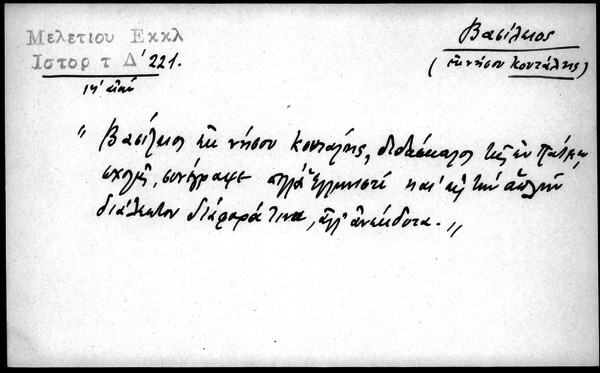 Μελετιου Εκκλ
Ιστορ τ Δ' 221.
ιη' αἰών
Βασίλειος
(ἐκ νήσου Κουτάλης)
" Βασίλειος ἐκ νήσου Κουτάλης, διδάσκαλος τῆς ἐν Πάτμῳ
σχολῆς, συνέγραψε πολλὰ Ἑλληνιστί και' εἰς τὴν ἁπλῆν
διάλεκτον διάφορά τινα, ἀλλ' ἀνέκδοτα. "